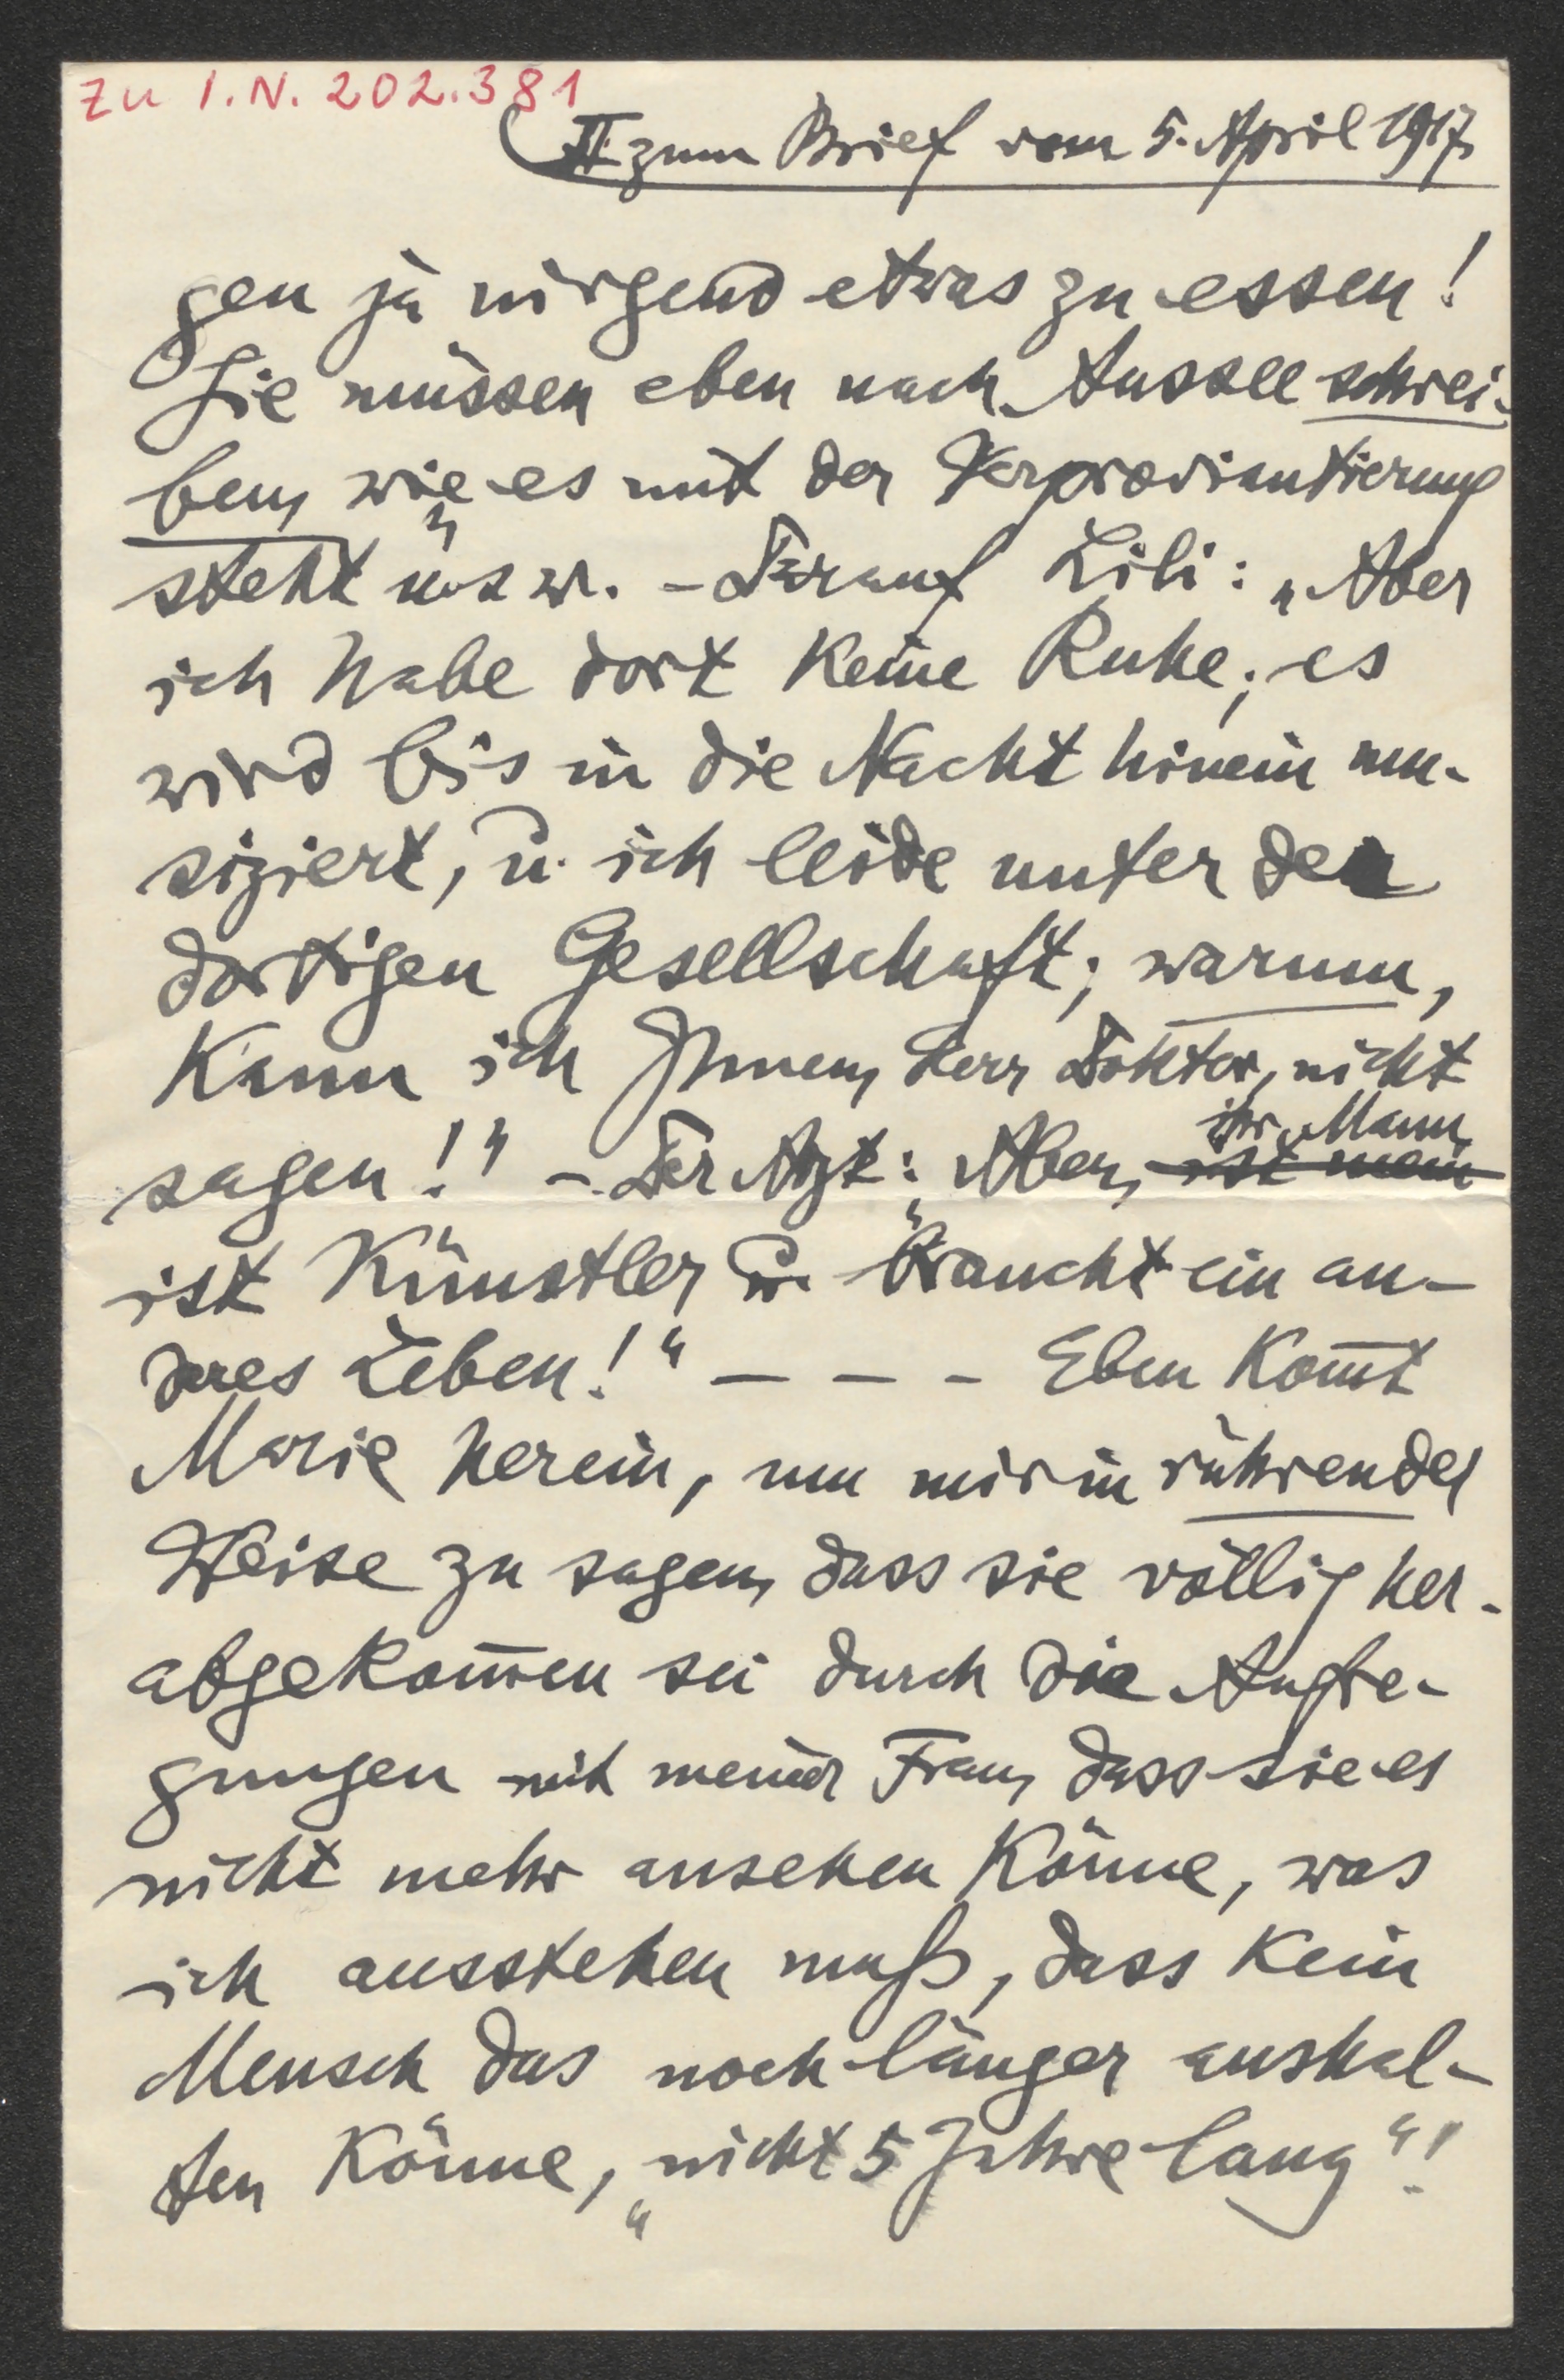 Zu I.N. 202.381
II zum Brief vom 5. April 1917
gen ja nirgend etwas zu essen!
Sie müssen eben nach Aussee schrei-
ben, wie es mit der Verproviantierung
steht u.s.w." – Darauf Lili: „Aber
ich habe dort keine Ruhe; es
wird bis in die Nacht hinein mu-
siziert, u. ich leide unter der
dortigen Gesellschaft; warum,
kann ich Ihnen, Herr Doktor, nicht
sagen!" – Der Arzt: „Aber, ist mein
ihr Mann
ist Künstler u. braucht ein an-
deres Leben!" – – – Eben kom̅t
Marie herein, um mir in rührender
Weise zu sagen, dass sie völlig her-
abgekom̅en sei durch die Aufre-
gungen mit meiner Frau, dass sie es
nicht mehr ansehen könne, was
ich ausstehen muß, dass kein
Mensch das noch länger aushal-
ten könne, „nicht 5 Jahre lang"!